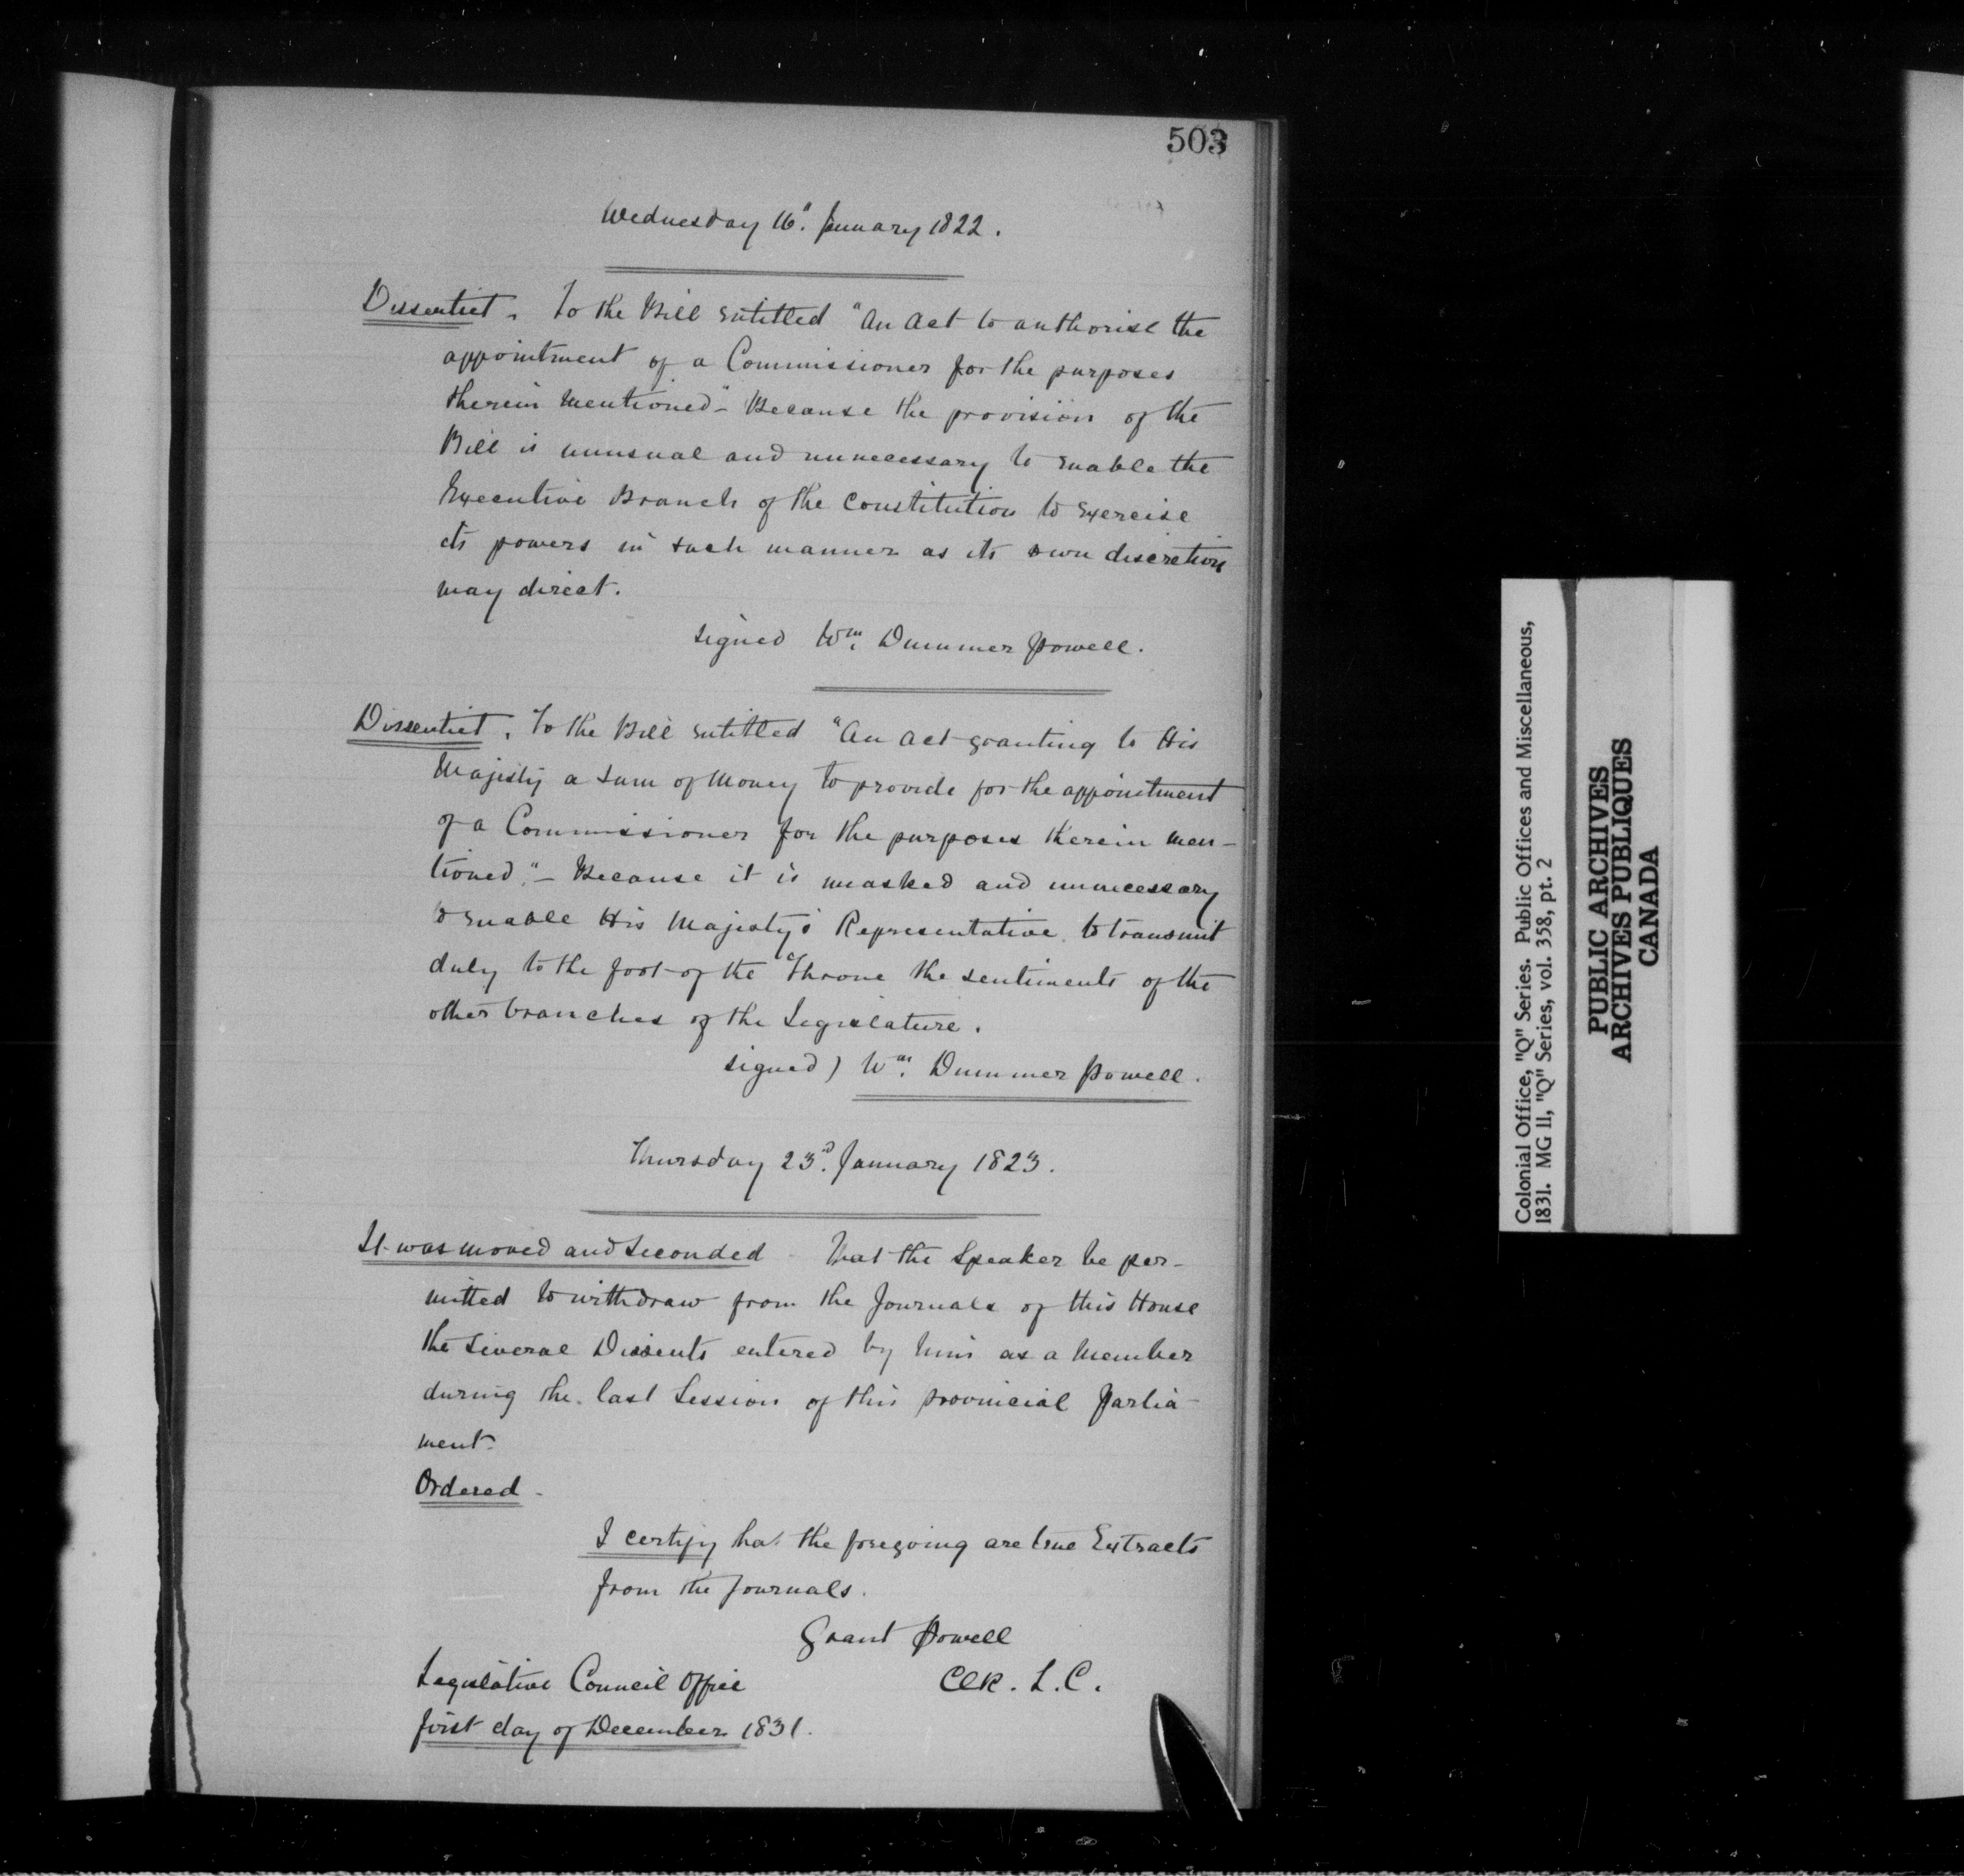 503
Wednesday 16". January 1822.
Dissentiet. To the Bill entitled "An Act to authorise the
appointment of a Commissioner for the purposes
therein mentioned"- Because the provision of the
Bill is unusual and unnecessary to enable the
Executive Branch of the Constitution to exercise
its powers in such manner as its own discretion
may direct.
signed Wm. Dummer Powell.
Dissentiet. To the Bill entitled "An Act granting to His
Majesty a sum of Money to provide for the appointment
of a Commissioner for the purposes therein men-
tioned."- Because it is unasked and unnecessary
to enable His Majesty's Representative to transmit
duly to the foot of the Throne the sentiments of the
other branches of the Legislature.
signed) Wm. Dummer Powell.
Thursday 23d. January 1823.
It was moved and seconded - That the Speaker be per-
mitted to withdraw from the Journals of this House
the several Dissents entered by him as a Member
during the last Session of this provincial Parlia-
ment.
Ordered -
I certify hat the foregoing are true Extracts
from the Journals.
Grant Powell
Clk. L.C.
Legislative Council Office
first day of December 1831.
Colonial Office, "Q" Series. Public Offices and Miscellaneous,
1831. MG 11, "Q" Series, vol. 358, pt. 2
PUBLIC ARCHIVES
ARCHIVES PUBLIQUES
CANADA